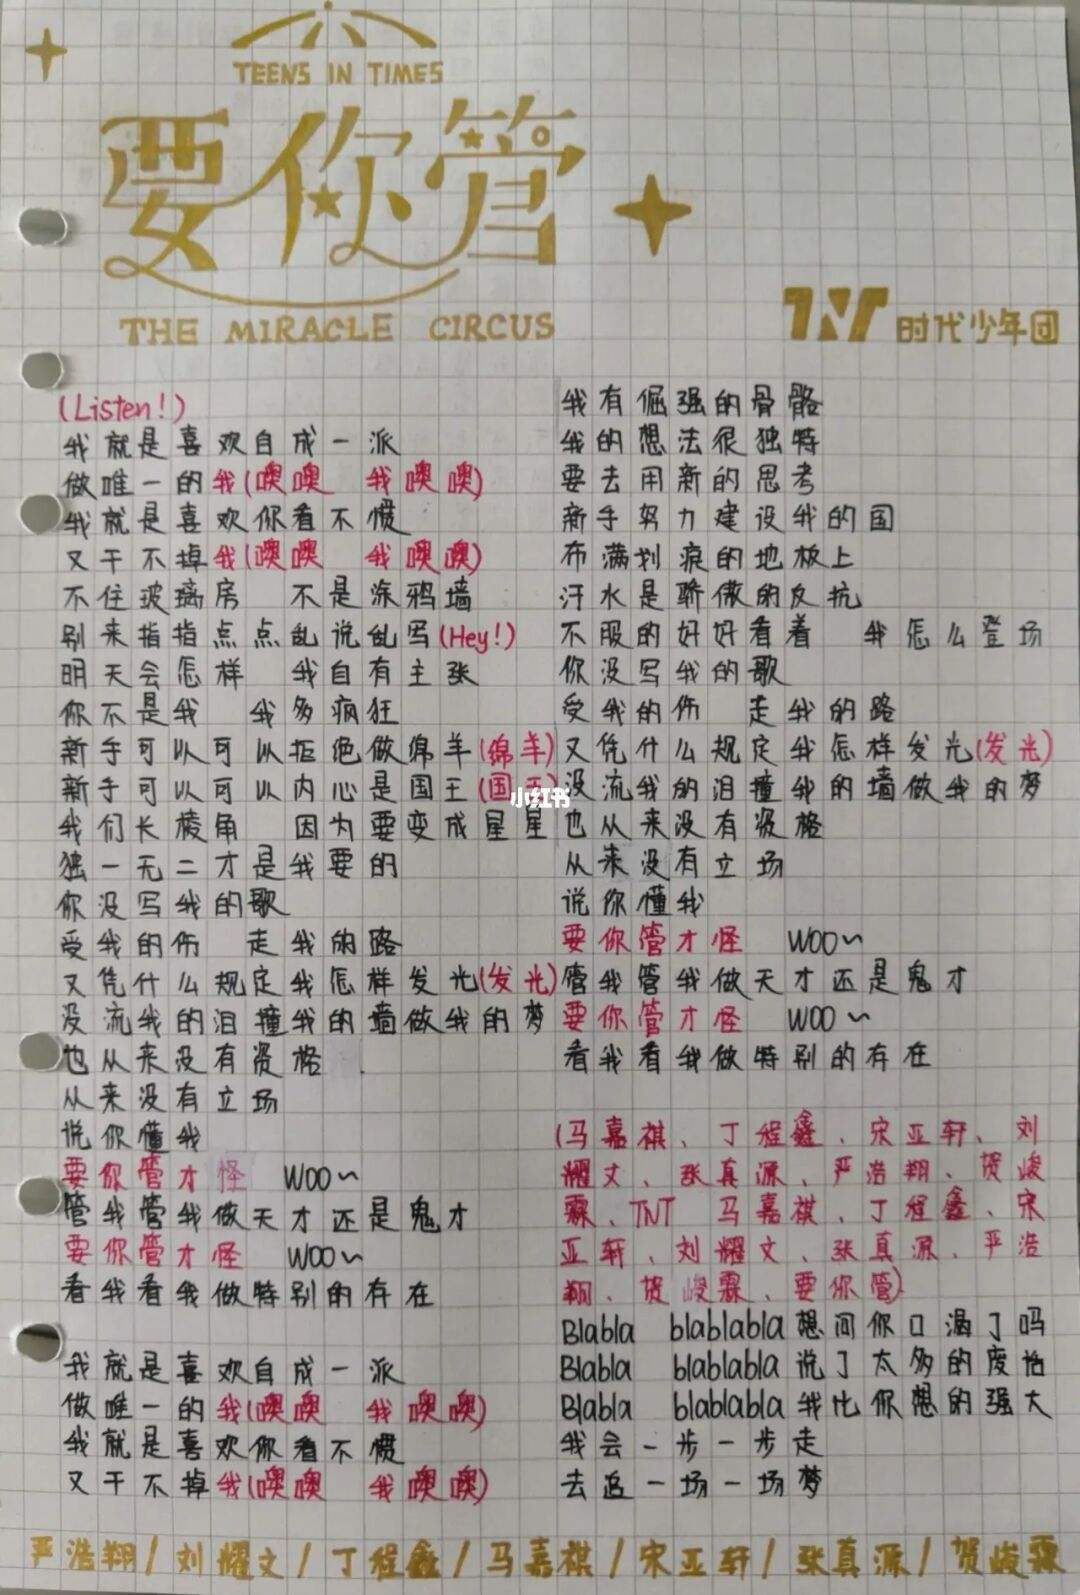 TEENS IN TIMES
要你管
THE MIRACLE CIRCUS
TNT 时代少年团
(Listen!)
我就是喜欢自成一派
做唯一的我(噢噢 我噢噢)
我就是喜欢你看不惯
又干不掉我(噢噢 我噢噢)
不住玻璃房 不是涂鸦墙
别来指指点点乱说乱写(Hey!)
明天会怎样 我自有主张
你不是我 我多疯狂
新手可以可以拒绝做绵羊(绵羊)
新手可以可以内心是国王(国王)
我们长棱角 因为要变成星星
独一无二才是我要的
你没写我的歌
受我的伤 走我的路
又凭什么规定我怎样发光(发光)
没流我的泪撞我的墙做我的梦
也从来没有资格
从来没有立场
说你懂我
要你管才怪 WOO~
管我管我做天才还是鬼才
要你管才怪 WOO~
看我看我做特别的存在
我就是喜欢自成一派
做唯一的我(噢噢 我噢噢)
我就是喜欢你看不惯
又干不掉我(噢噢 我噢噢)
我有倔强的骨骼
我的想法很独特
要去用新的思考
新手努力建设我的国
布满划痕的地板上
汗水是骄傲的反抗
不服的好好看着 我怎么登场
你没写我的歌
受我的伤 走我的路
又凭什么规定我怎样发光(发光)
没流我的泪撞我的墙做我的梦
也从来没有资格
从来没有立场
说你懂我
要你管才怪 WOO~
管我管我做天才还是鬼才
要你管才怪 WOO~
看我看我做特别的存在
(马嘉祺、丁程鑫、宋亚轩、刘
耀文、张真源、严浩翔、贺峻
霖、TNT 马嘉祺、丁程鑫、宋
亚轩、刘耀文、张真源、严浩
翔、贺峻霖、要你管)
Blabla blablabla想问你口渴了吗
Blabla blablabla说了太多的废话
Blabla blablabla我比你想的强大
我会一步一步走
去追一场一场梦
严浩翔/刘耀文/丁程鑫/马嘉祺/宋亚轩/张真源/贺峻霖
小红书